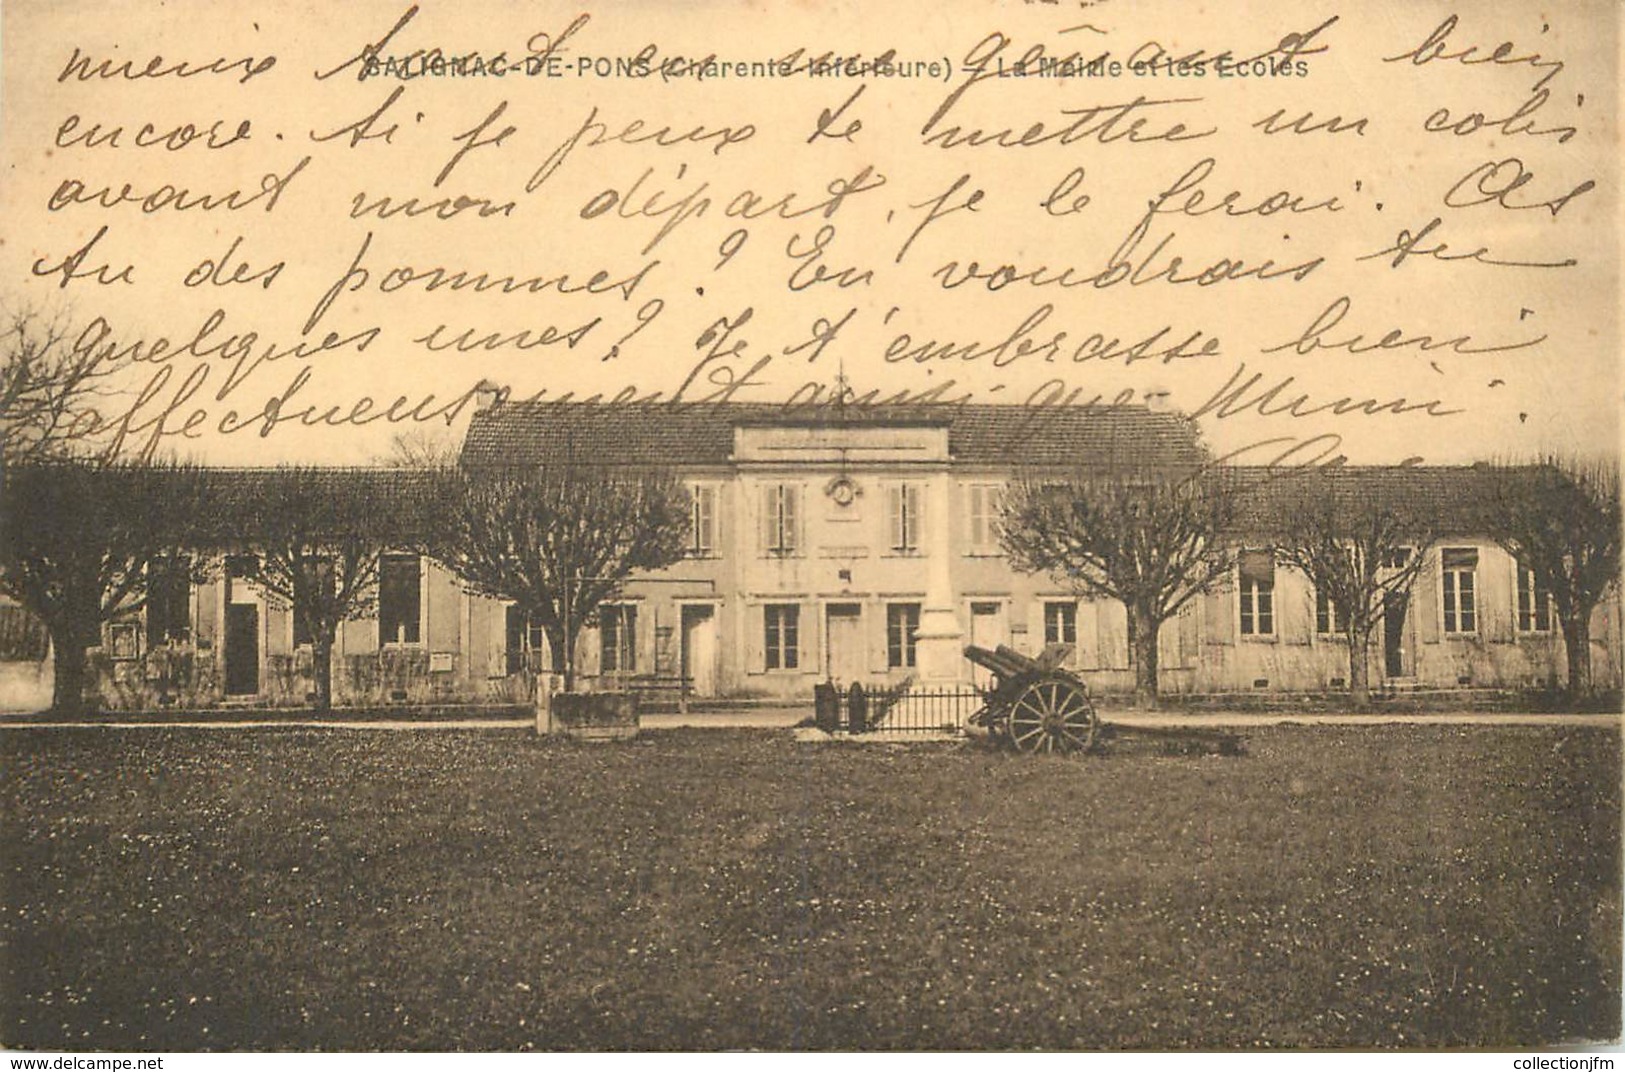 mieux tout en me gênant bien
SALIGNAC-DE-PONS (Charente Inférieure) - La Mairie et les Ecoles
encore. Si je peux te mettre un colis
avant mon départ, je le ferai. As
tu des pommes? En voudrais tu
quelques unes? Je t'embrasse bien
affectueusement ainsi que Mimi.
collectionjfm